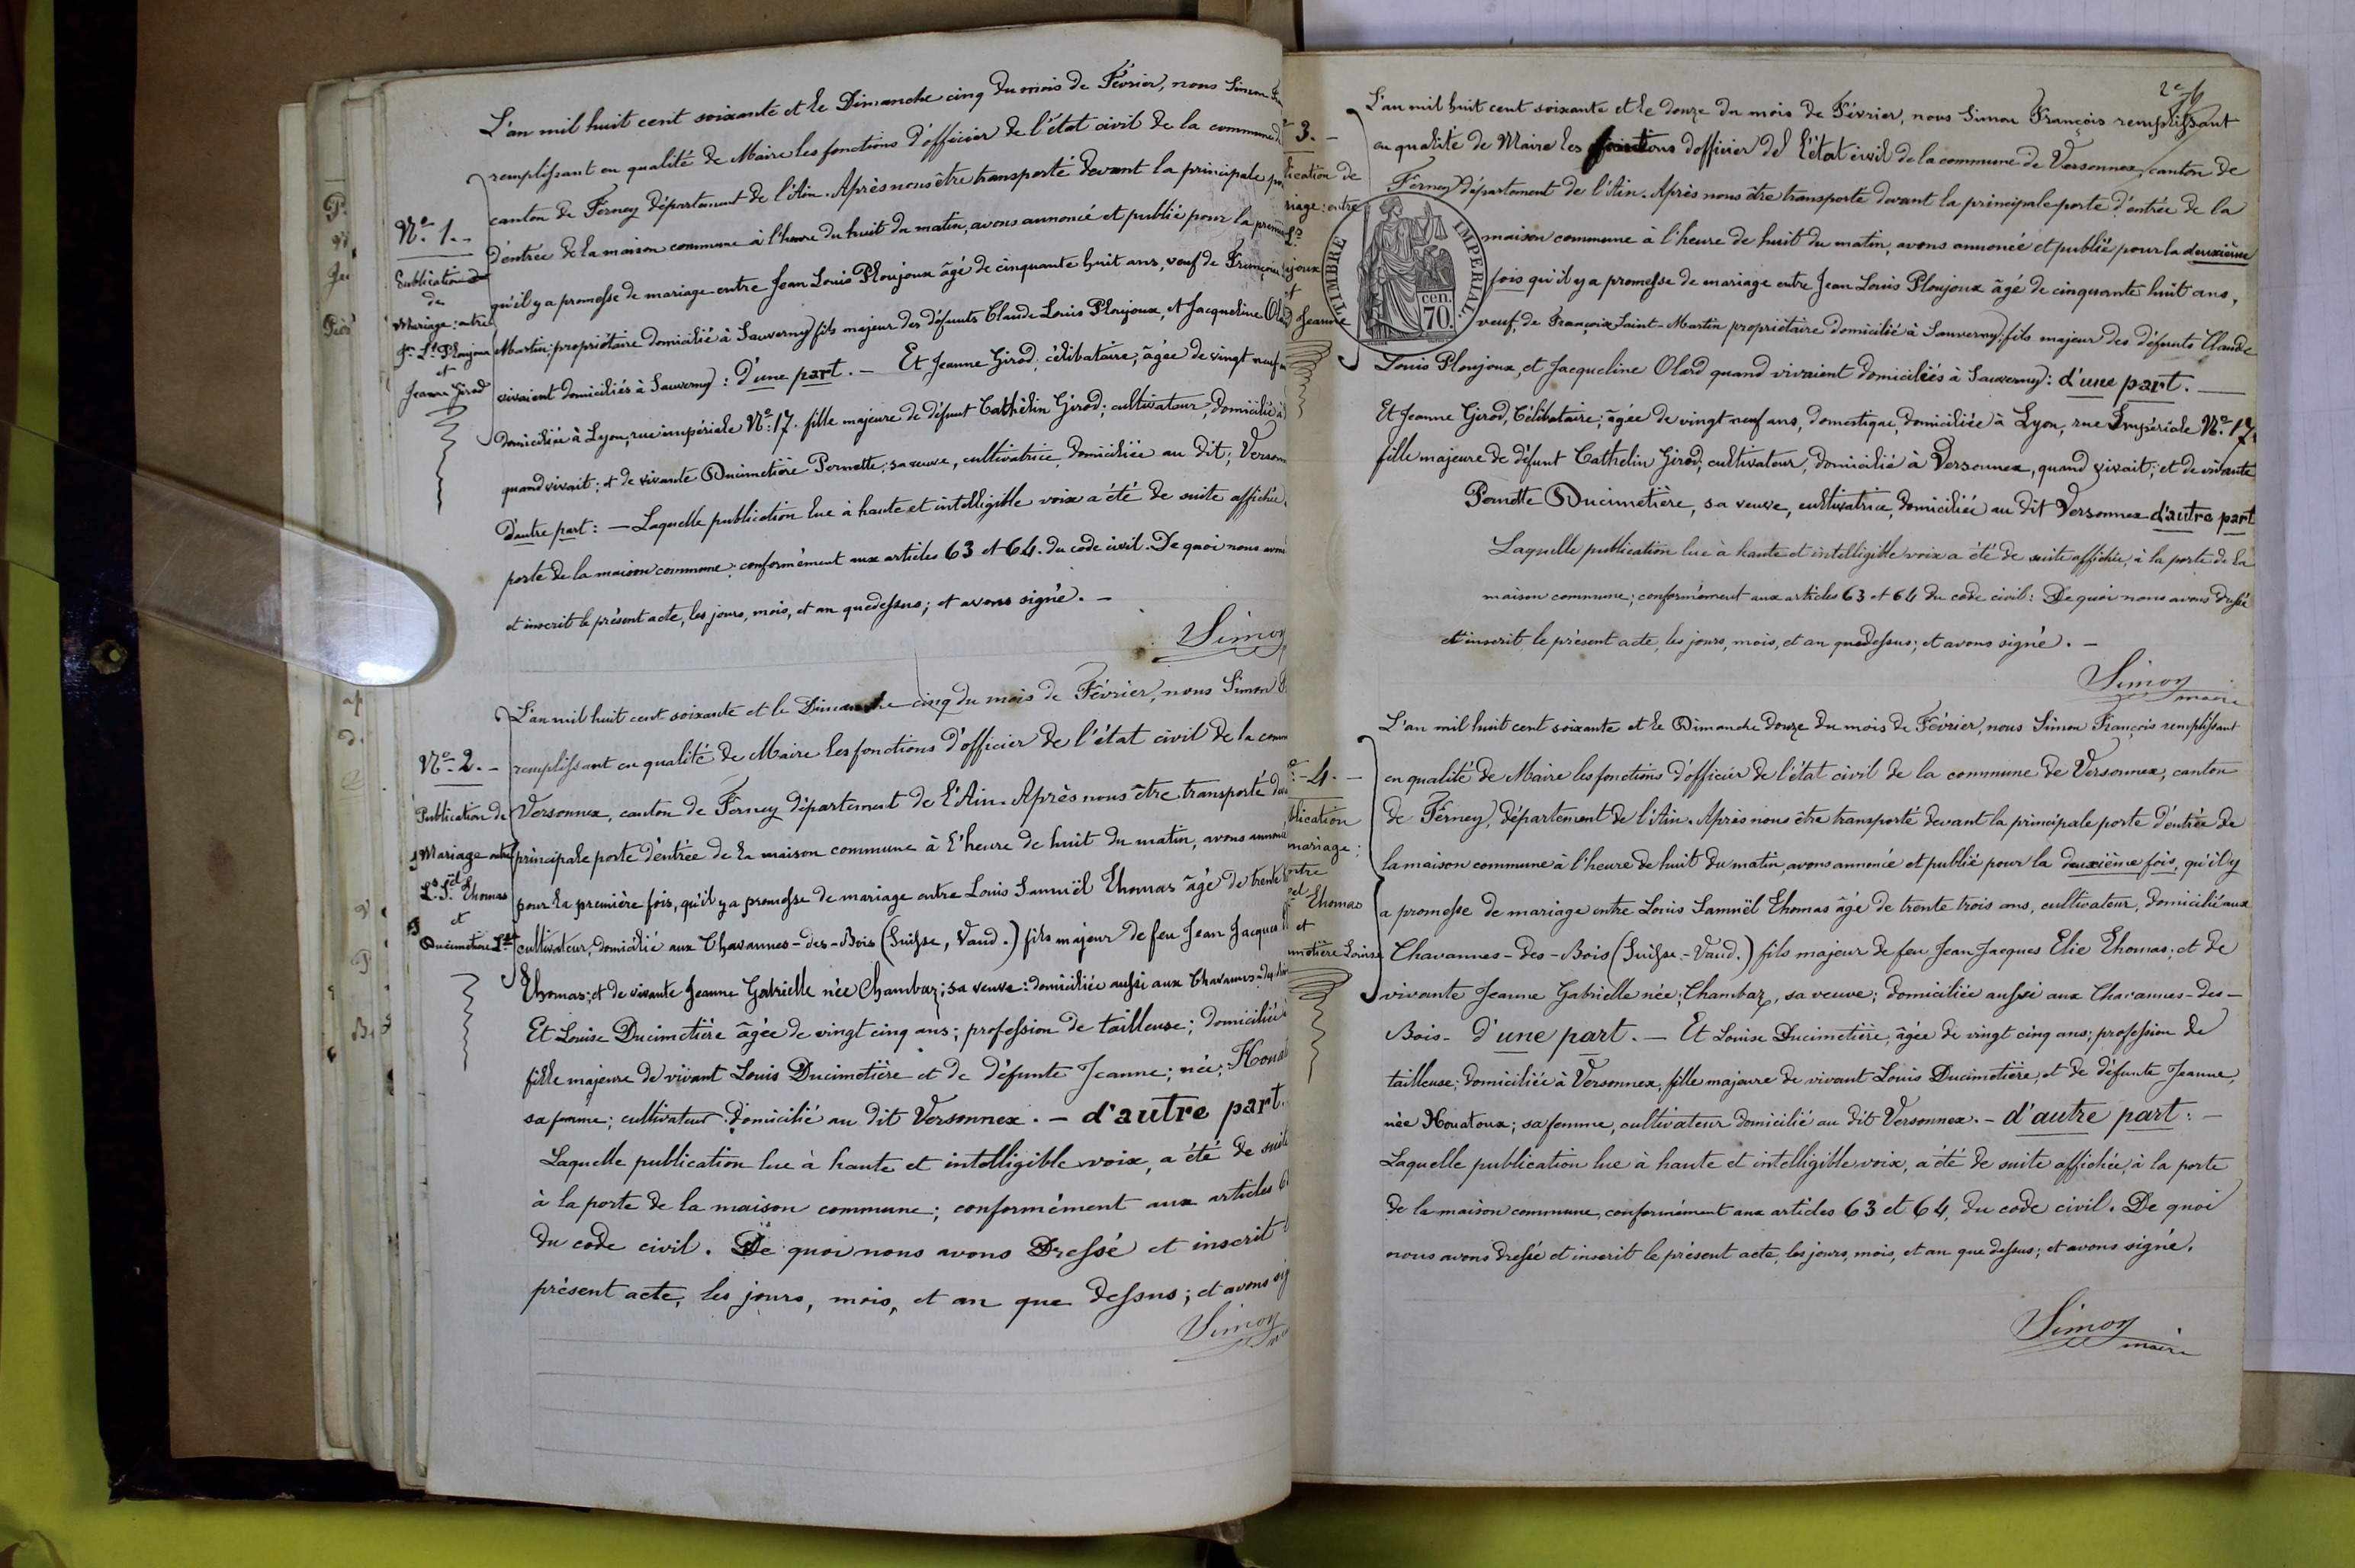 L'an mil huit cent soixante et le Dimanche cinq du mois de Février, nous Simon
remplissant en qualité de Maire les fonctions d'officier de l'état civil de la commune d
canton de Ferney département de l'Ain. Après nous être transporté devant la principale
d'entrée de la maison commune à l'heure du huit du matin, avons annoncé et publié pour la
qu'il y a promesse de mariage entre Jean Louis Ploujoux âgé de cinquante huit ans, veuf de
Martin; propriétaire domicilié à Sauverny fils majeur des défunts Claude Louis Ploujoux, et Jacqueline
vivaient domiciliés à Sauverny : d'une part. — Et Jeanne Girod, célibataire, âgée de vingt neuf
domiciliée à Lyon, rue impériale No. 17. fille majeure de défunt Cathélin Girod; cultivateur, domicilié à
quand vivait; et de vivante Ducimetière Pernette; sa veuve, cultivatrice, domiciliée au dit; Verson
d'autre part : — Laquelle publication lue à haute et intelligible voix a été de suite affichée
porte de la maison commune; conformément aux articles 63 et 64. du code civil. De quoi nous
et inscrit le présent acte, les jours, mois, et an quedessus; et avons signé. —
Simon
No. 1. -
Publication
de
Mariage: entre
Jn. Ls. Ploujoux
et
Jeanne Girod
L'an mil huit cent soixante et le Dimanche cinq du mois de Février, nous Simon
remplissant en qualité de Maire les fonctions d'officier de l'état civil de la
Versonnex, canton de Ferney département de l'Ain. Après nous être transporté
principale porte d'entrée de la maison commune à l'heure de huit du matin, avons
pour la première fois, qu'il y a promesse de mariage entre Louis Samuël Thomas âgé de trente
cultivateur, domicilié aux Chavannes-des-Bois (Suisse, Vaud.) fils majeur de feu Jean Jacques
Thomas; et de vivante Jeanne Gabrielle née Chambaz; sa veuve: domiciliée aussi aux Chavannes-des
Et Louise Ducimetière âgée de vingt cinq ans; profession de tailleuse; domiciliée
fille majeure de vivant Louis Ducimetière et de défunte Jeanne; née;
sa femme; cultivateur domicilié au dit Versonnex. — d'autre part.
Laquelle publication lue à haute et intelligible voix, a été de suite
à la porte de la maison commune; conformément aux articles
du code civil. De quoi nous avons Dressé et inscrit
présent acte, les jours, mois, et an que dessus; et avons
Simon
No. 2. -
Publication de
Mariage entre
Ls. Sël. Thomas
et
Ducimetière Lse
2e
L'an mil huit cent soixante et le douze du mois de Février, nous Simon François remplissant
en qualité de Maire les fonctions d'officier del l'état civil de la commune de Versonnex, canton de
Ferney département de l'Ain. Après nous être transporté devant la principale porte d'entrée de la
maison commune à l'heure de huit du matin, avons annoncé et publié pour la deuxième
fois qu'il y a promesse de mariage entre Jean Louis Ploujoux âgé de cinquante huit ans,
veuf de Françoise Saint-Martin propriétaire domicilié à Sauverny, fils majeur des défunts Claude
Louis Ploujoux, et Jacqueline Olard quand vivaient domiciliés à Sauverny: d'une part. —
Et Jeanne Girod, Célibataire; âgée de vingt neuf ans, domestique, domiciliée à Lyon, rue Impériale No. 17.
fille majeure de défunt Cathelin Girod, cultivateur, domicilié à Versonnex, quand vivait; et de vivante
Pernette Ducimetière, sa veuve, cultivatrice, domiciliée au dit Versonnex d'autre part
Laquelle publication lue à haute et intelligible voix a été de suite affichée, à la porte de la
maison commune; conformément aux articles 63 et 64 du code civil: De quoi nous avons dressé
et inscrit, le présent acte, les jours, mois, et an quedessus; et avons signé. —
Simon
maire
3. -
lication de
riage: entre
ujoux
et
Jeanne
TIMBRE IMPERIAL
cen.
70.
L'an mil huit cent soixante et le Dimanche douze du mois de Février, nous Simon François remplissant
en qualité de Maire les fonctions d'officier de l'état civil de la commune de Versonnex, canton
de Ferney, département de l'Ain. Après nous être transporté devant la principale porte d'entrée de
la maison commune à l'heure de huit du matin, avons annoncé et publié pour la deuxième fois, qu'il y
a promesse de mariage entre Louis Samuël Thomas âgé de trente trois ans, cultivateur, domicilié aux
Chavannes-des-Bois (Suisse.-Vaud.) fils majeur de feu Jean Jacques Elie Thomas; et de
vivante Jeanne Gabrielle née; Chambaz, sa veuve; domiciliée aussi aux Chavannes-des-
Bois- d'une part. — Et Louise Ducimetière; âgée de vingt cinq ans; profession de
tailleuse; domiciliée à Versonnex, fille majeure de vivant Louis Ducimetière, et de défunte Jeanne,
née Houatoux; sa femme, cultivateur domicilié au dit Versonnex. - d'autre part: —
Laquelle publication lue à haute et intelligible voix, a été de suite affichée, à la porte
de la maison commune, conformément aux articles 63 et 64, du code civil. De quoi
nous avons dressé et inscrit le présent acte, les jours, mois, et an que dessus; et avons signé.
Simon
maire
4. -
blication
mariage:
ntre
Thomas
et
metière Louise